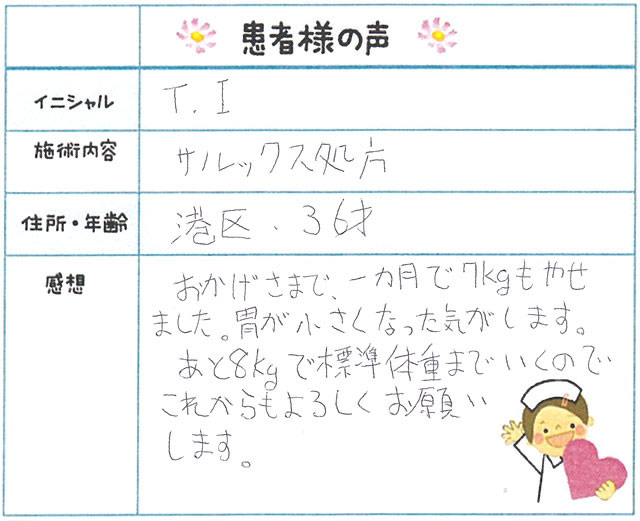 患者様の声
イニシャル
T.I
施術内容
サノレックス処方
住所・年齢
港区.36才
感想
おかげさまで、一カ月で7kgもやせ
ました。胃が小さくなった気がします。
あと8kgで標準体重までいくので
これからもよろしくお願い
します。